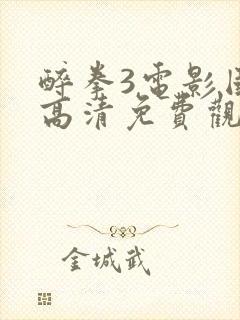 醉拳3電影
高清免費觀
金城武